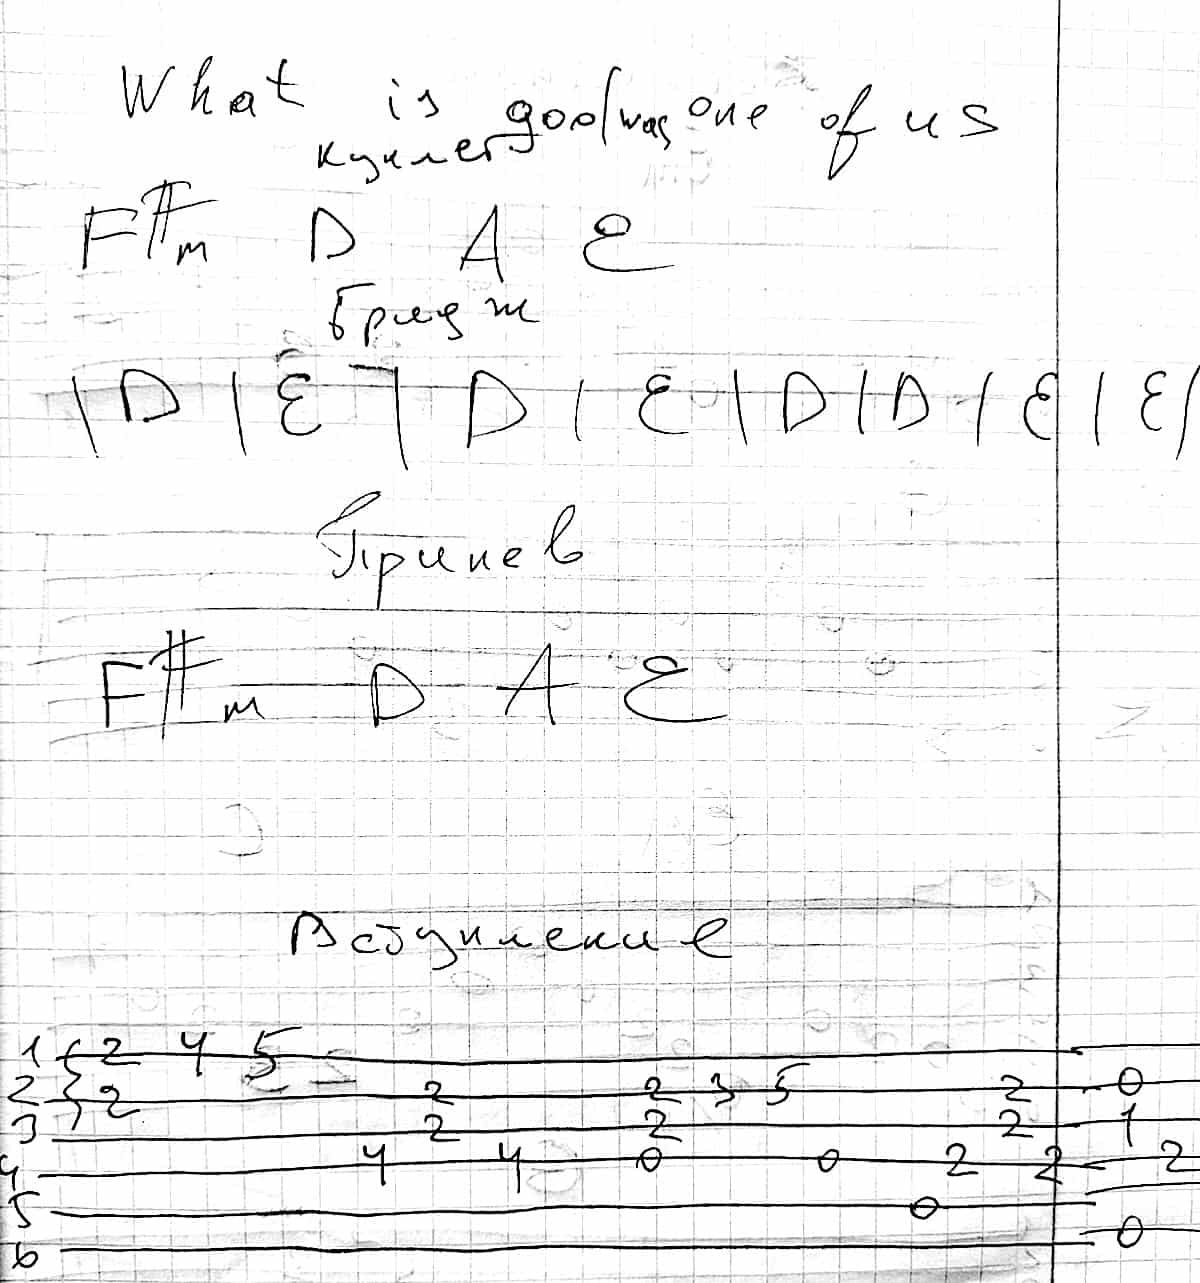 What is goo/was one of us
куплет
F#m D A E
бридж
| D | E | D | E | D | D | E | E |
Припев
F#m D A E
Вступление
1 2 4 5
2 2 2 2 3 5 2 0
3 2 2 2 1
4 4 4 0 0 2 2 2
5 0
6 0